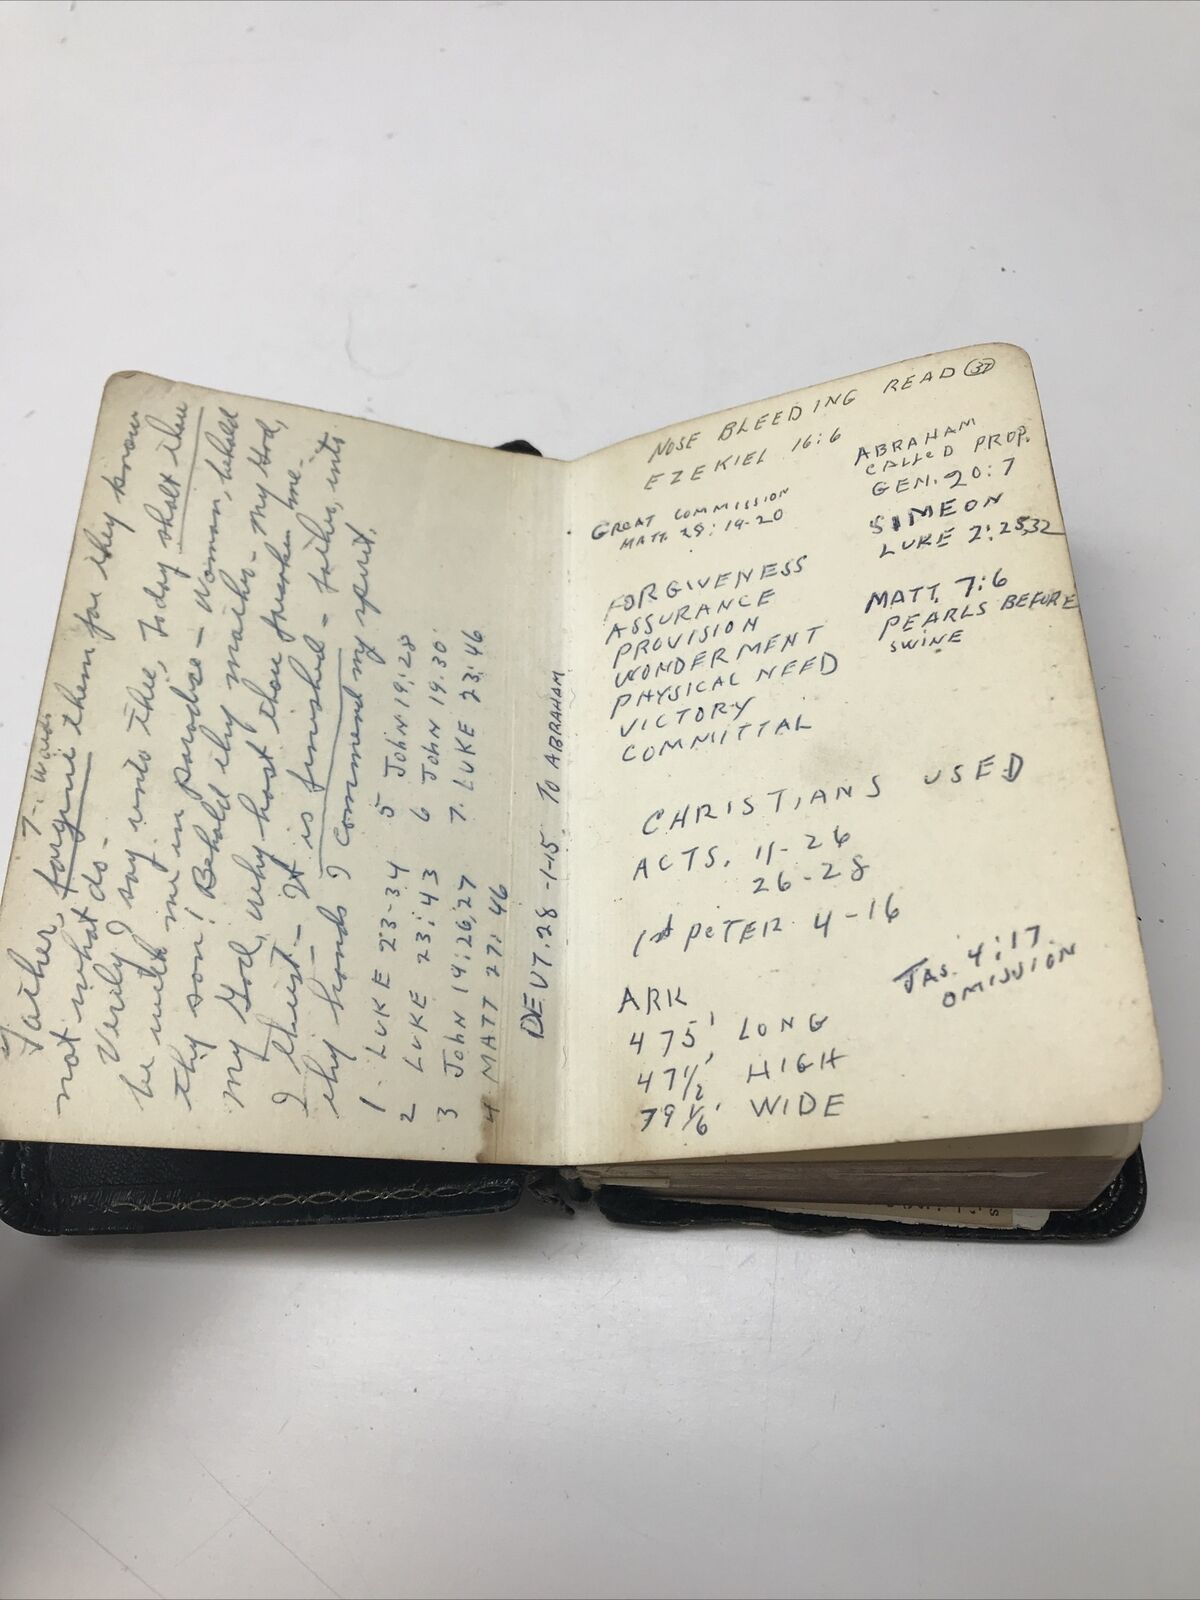 7- words
Father, forgive them for they know
not what do -
Verily I say unto thee, Today shalt thou
be with me in paradise - Woman, behold
thy son! Behold thy mother - My God,
my God, why hast thou forsaken me -
I thirst - It is finished - Father, into
thy hands I commend my spirit.
1 - LUKE 23-34
2 LUKE 23:43
3 JOHN 19:26,27
4 MATT 27:46
5 JOHN 19:28
6 JOHN 19:30
7. LUKE 23:46
DEUT. 28-1-15. TO ABRAHAM
NOSE BLEEDING READ 37
EZEKIEL 16:6
GREAT COMMISSION
MATT. 28:19-20
ABRAHAM
CALLED PROP.
GEN. 20:7
SIMEON
LUKE 2:25,32
MATT. 7:6
PEARLS BEFORE
SWINE
FORGIVENESS
ASSURANCE
PROVISION
WONDERMENT
PHYSICAL NEED
VICTORY
COMMITTAL
CHRISTIANS USED
ACTS. 11-26
26-28
1st PETER 4-16
JAS. 4:17.
OMISSION
ARK
475' LONG
47 1/2' HIGH
79 1/6' WIDE